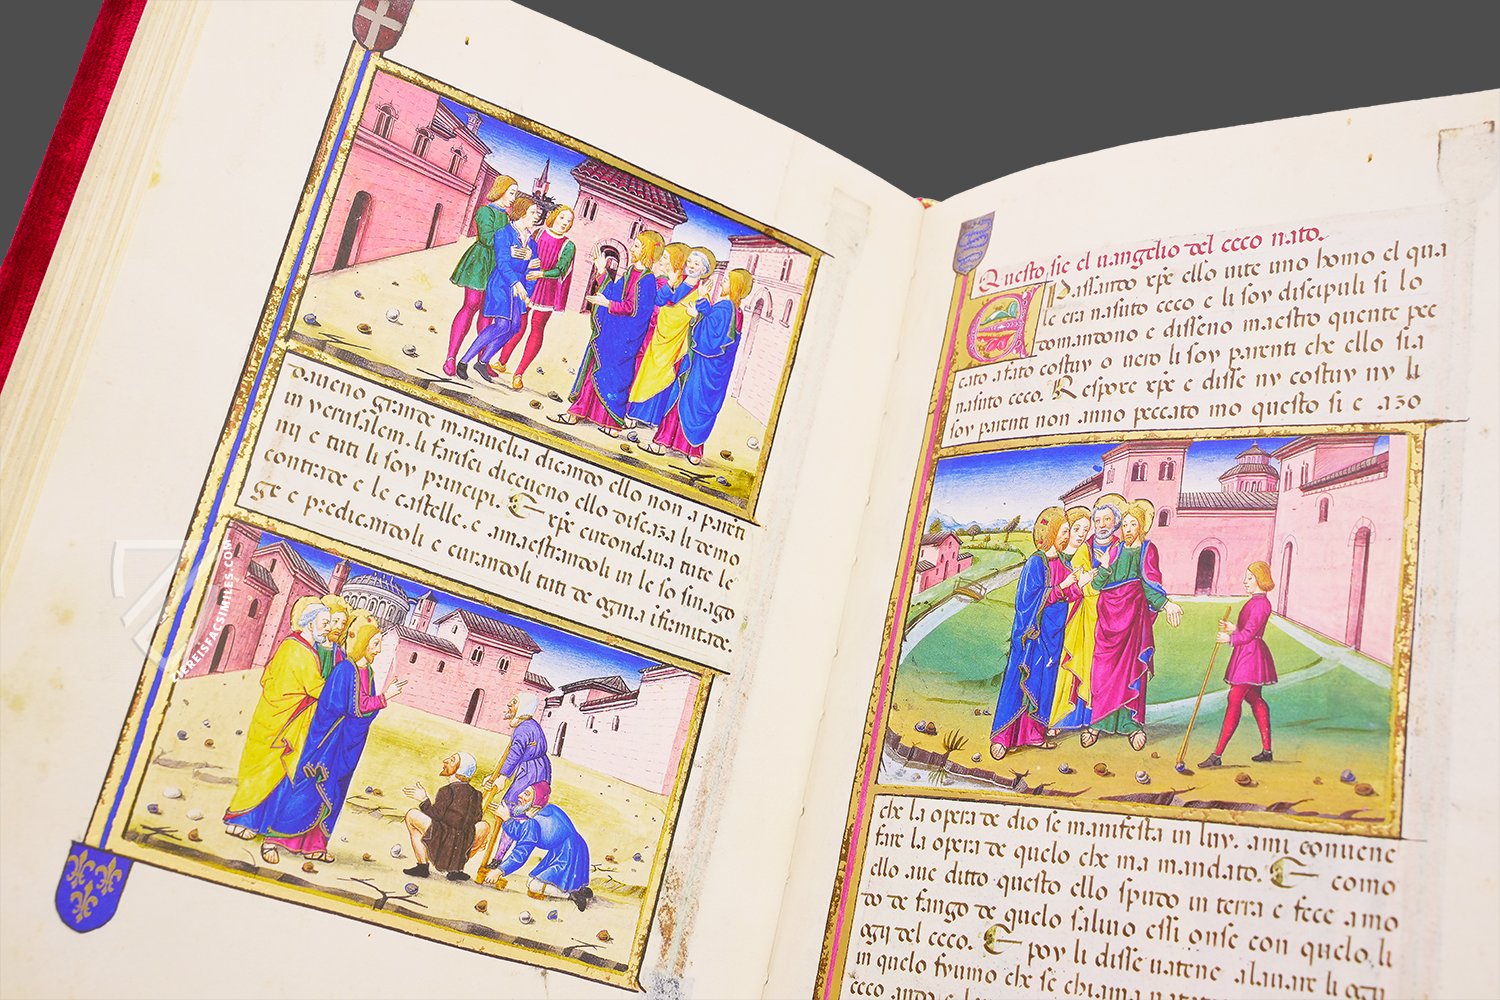 daueno grande marauelia dicando ello non a pareti
in yerusalem. li farisei diceueno ello discaza li demo
nij e tuti li soy principi. E xp̄e circondaua tute le
contrade e le castelle. e amaestrandoli in le so sinago
ge e predicandoli e curandoli tuti de ogni a ifirmitade.
Questo sie el uangelio del ceco nato.
Passando xp̄e ello uite uno homo el qua
le era nasuto ceco e li soy discipuli si lo
domandono e disseno maestro quente pec
cato a fato costuy o uero li soy parenti che ello sia
nasuto ceco. Respoxe xp̄e e disse ny costuy ny li
soy parenti non anno peccato mo questo si e azo
che la opera de dio se manifesta in luy. ami conuene
fare la opera de quelo che ma mandato. E como
ello aue ditto questo ello spudo in terra e fece amo
do de fango de quelo saliuo essi onse con quelo li
ogij del ceco. E poy li disse uatene alauare li ogij
in quelo fyumo che se chiama
ZIEREISFACSIMILES.COM